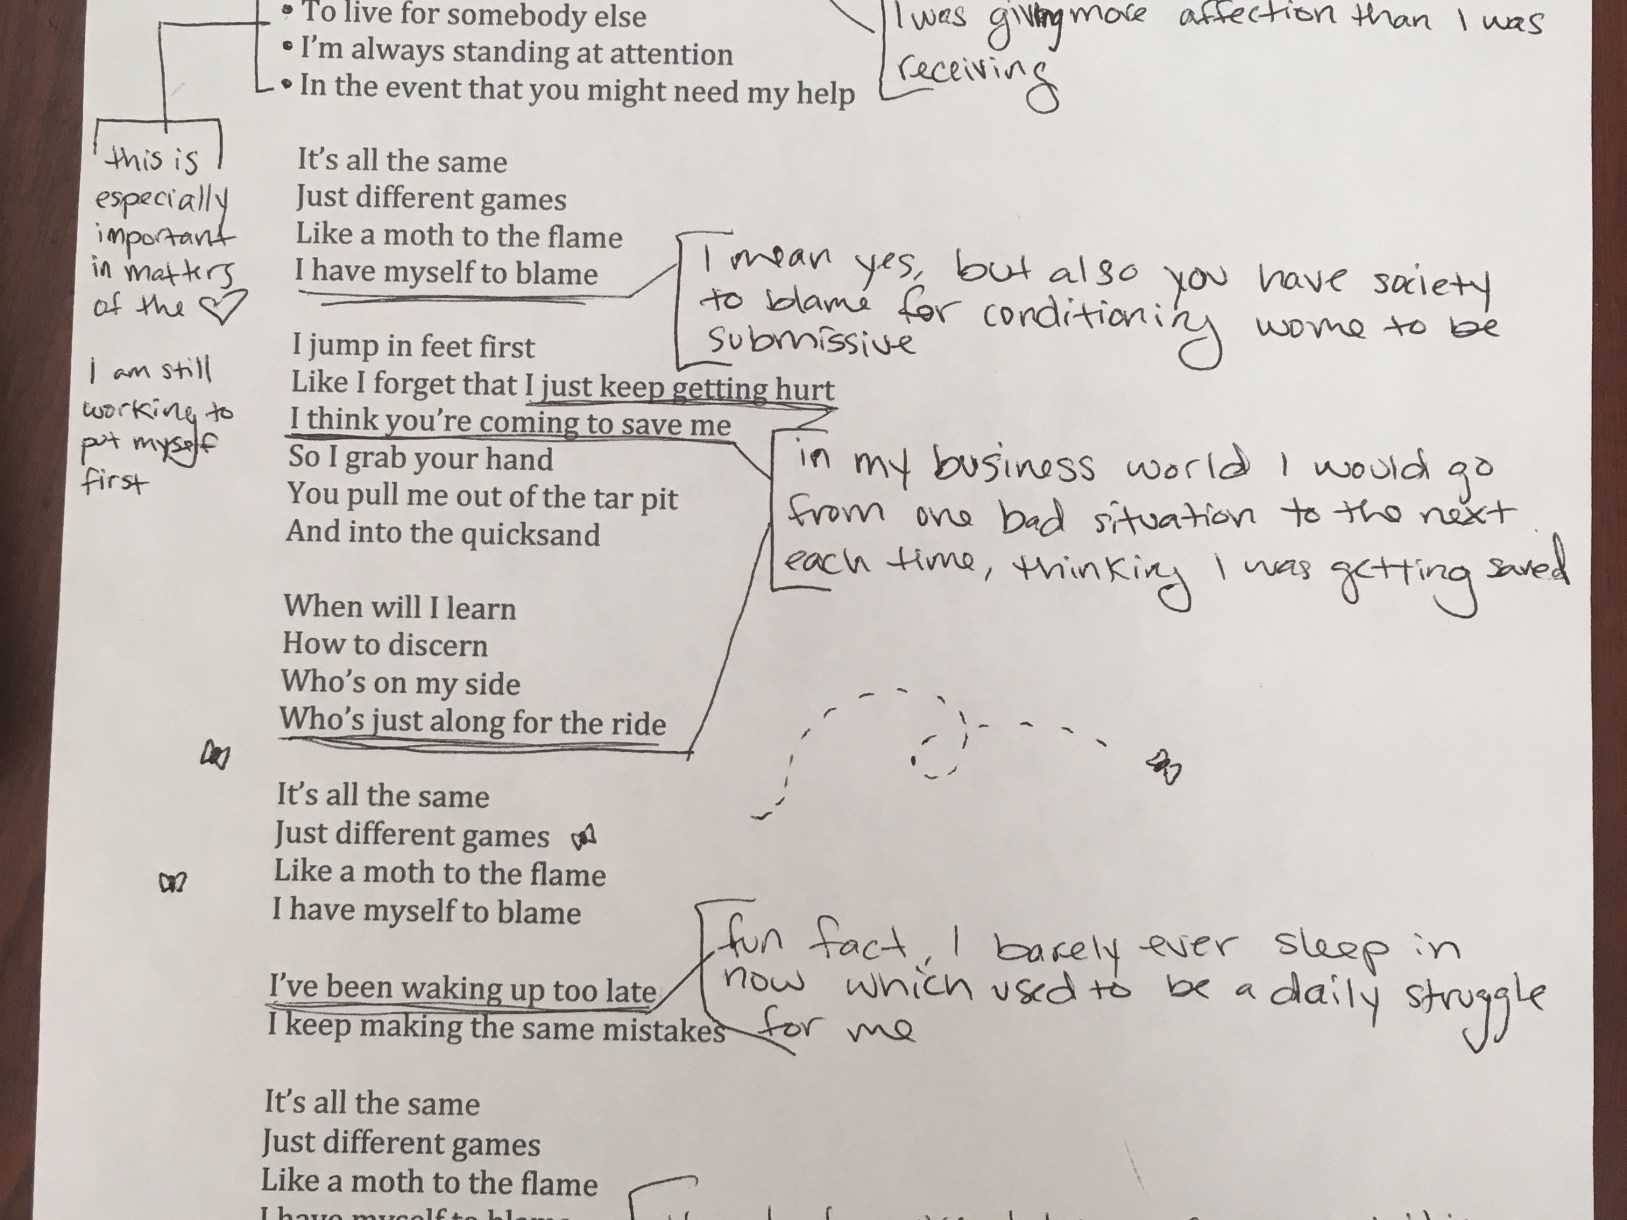 • To live for somebody else
• I'm always standing at attention
• In the event that you might need my help
I was giving more affection than I was
receiving
this is
especially
important
in matters
of the ♡
I am still
working to
put myself
first
It's all the same
Just different games
Like a moth to the flame
I have myself to blame
I mean yes, but also you have society
to blame for conditioning wome to be
submissive
I jump in feet first
Like I forget that I just keep getting hurt
I think you're coming to save me
So I grab your hand
You pull me out of the tar pit
And into the quicksand
in my business world I would go
from one bad situation to the next
each time, thinking I was getting saved
When will I learn
How to discern
Who's on my side
Who's just along for the ride
It's all the same
Just different games
Like a moth to the flame
I have myself to blame
I've been waking up too late
I keep making the same mistakes
fun fact, I barely ever sleep in
now which used to be a daily struggle
for me
It's all the same
Just different games
Like a moth to the flame
I have myself to blame